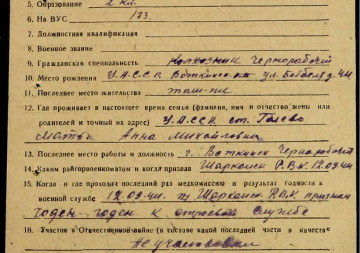 5. Образование 2 кл.
6. На ВУС 133
7. Должностная квалификация
8. Военное звание
9. Гражданская специальность Колхозник Чернорабочий
10. Место рождения УАССР Воткинск ул.
11. Последнее место жительства там-же
12. Где проживает в настоящее время семья (фамилия, имя и отчество жены или
родителей и точный их адрес) УАССР, ст.
Мать Анна Михайловна
13. Последнее место работы и должность г. Воткинск Чернорабочий
14. Каким райгорвоенкоматом и когда призван Шарканск РВК 12.09.41
15. Когда и где проходил последний раз медкомиссию и результат годности к
военной службе 12.09.41 Шарканск РВК признан
годен - годен к строевой службе
16. Участие в Отечественной войне (в составе какой последней части в качестве
Не участвовал